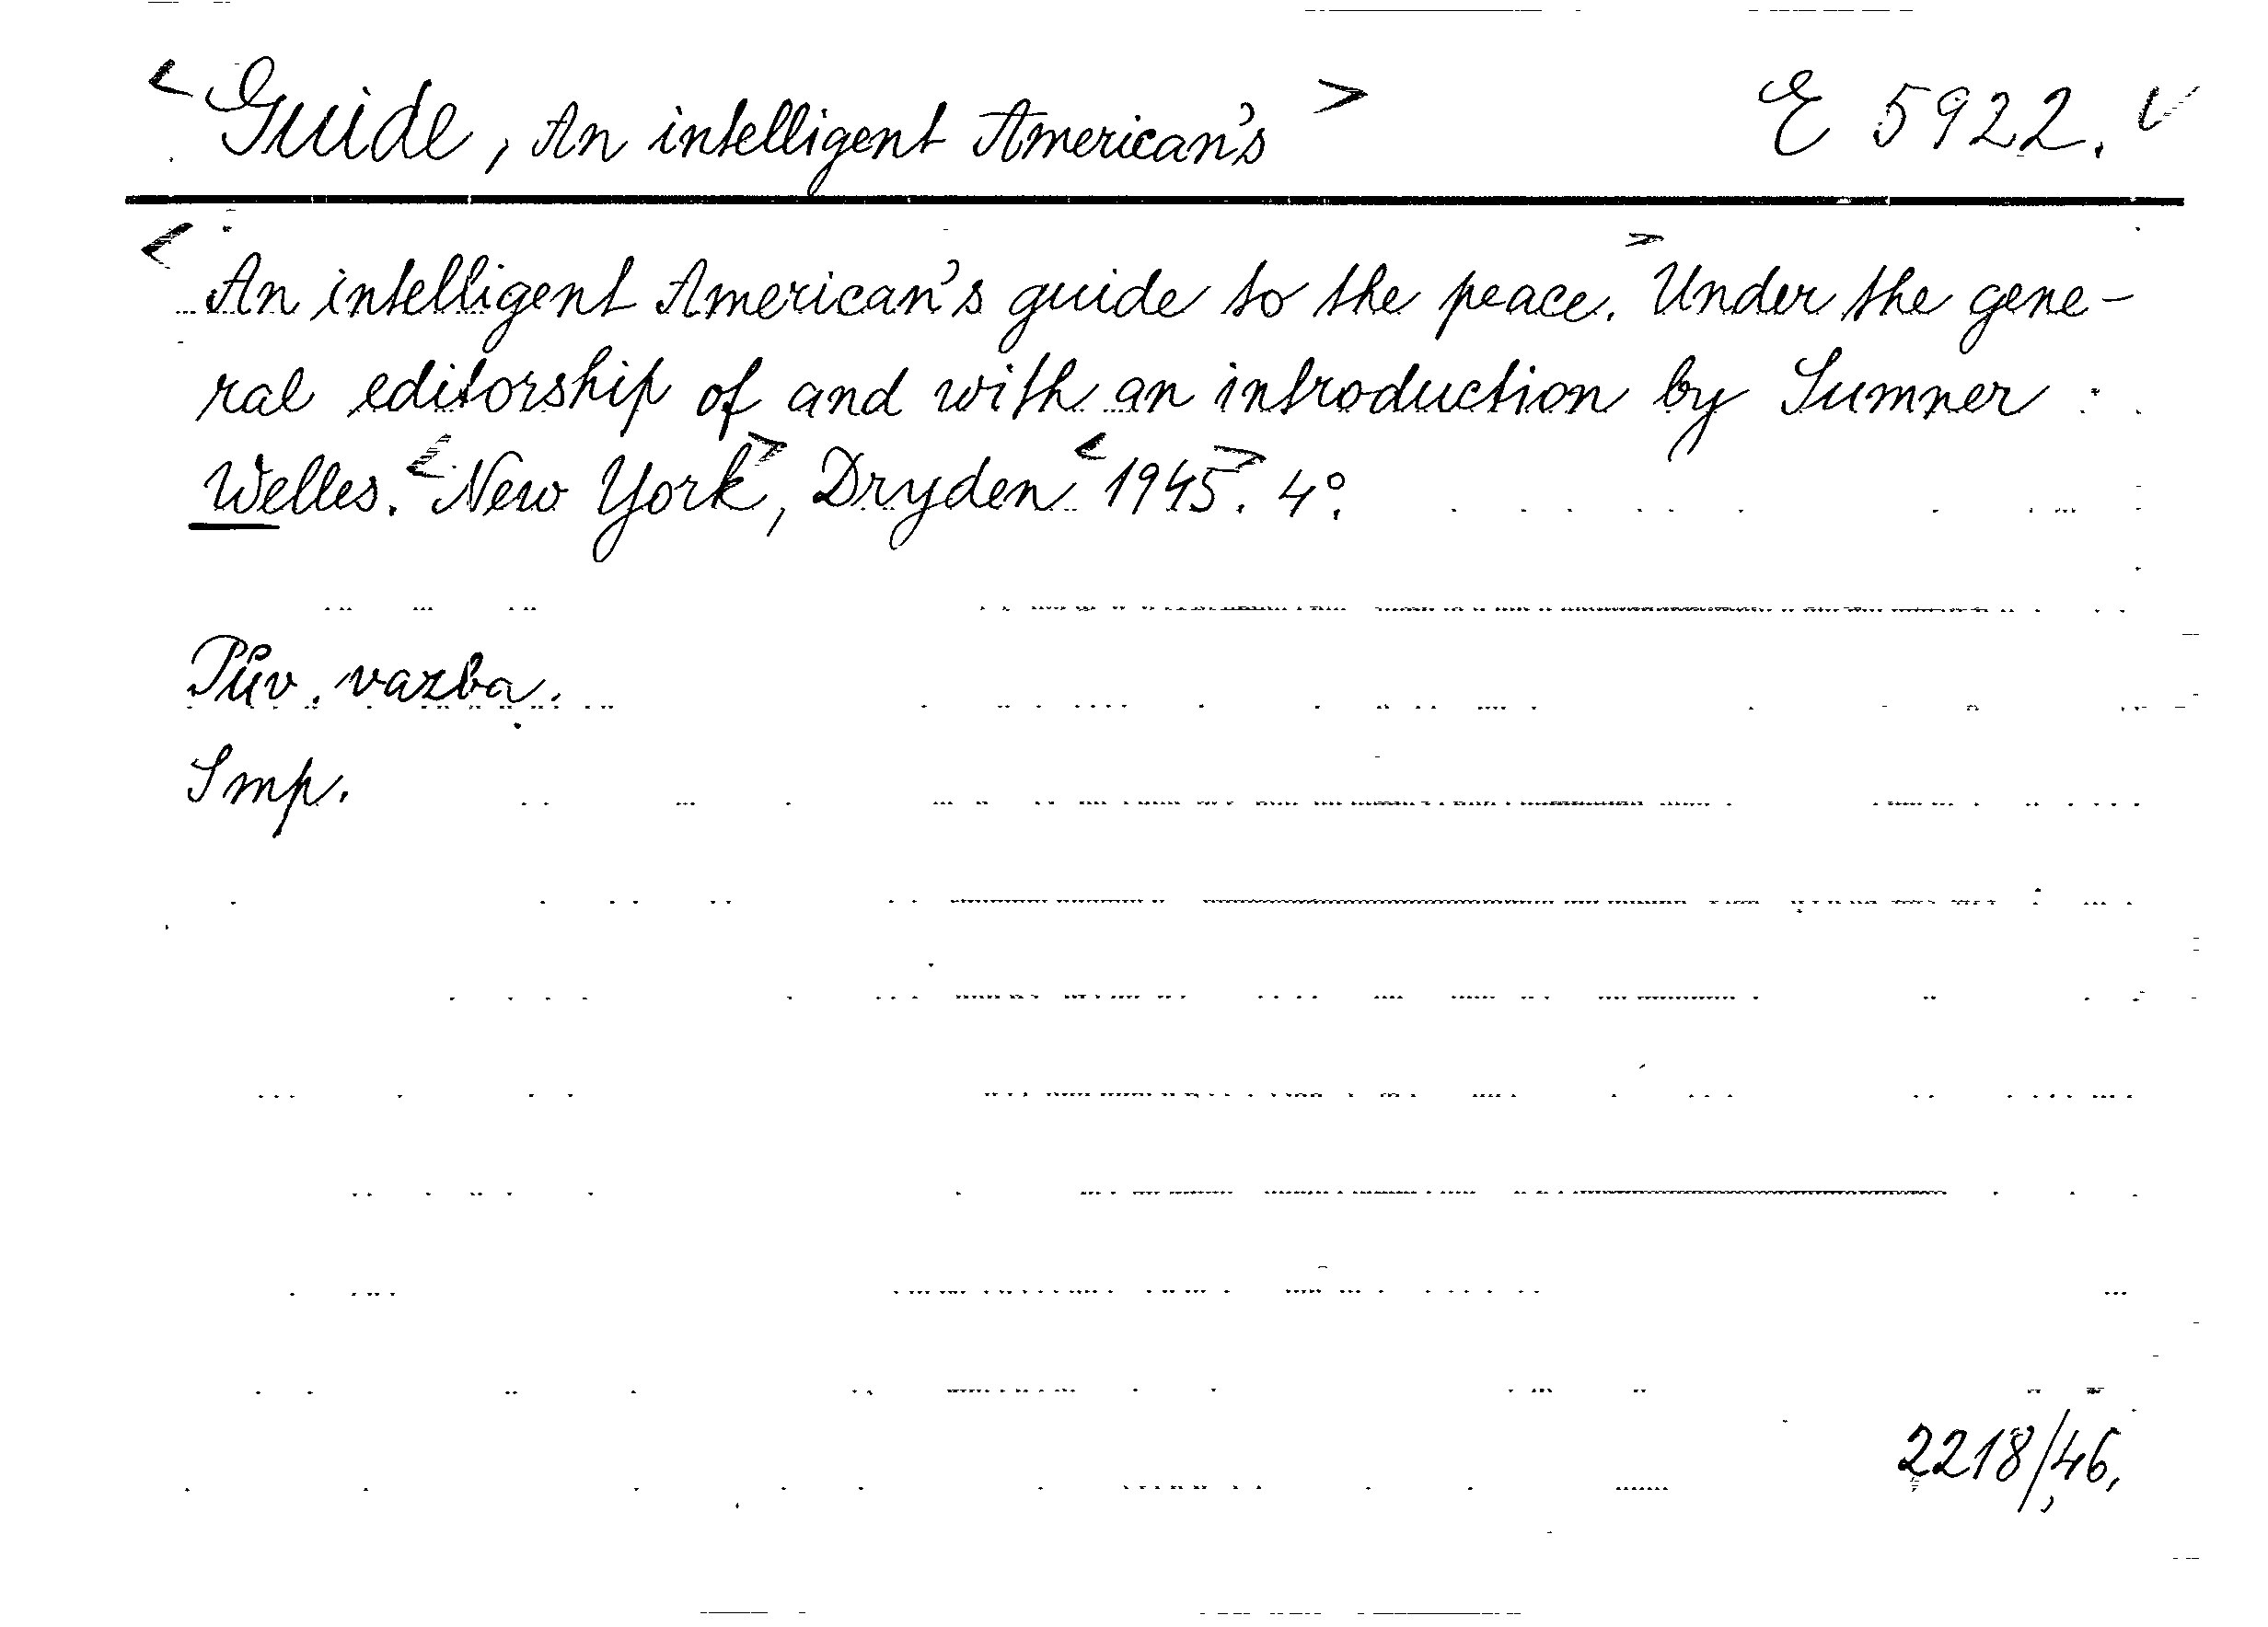 <Guide, An intelligent American's> E 5922. v
<An intelligent American's guide to the peace.> Under the gene-
ral editorship of and with an introduction by Sumner
Welles. <New York>, Dryden <1945>. 4°.
Pův. vazba.
Imp.
2218/46.